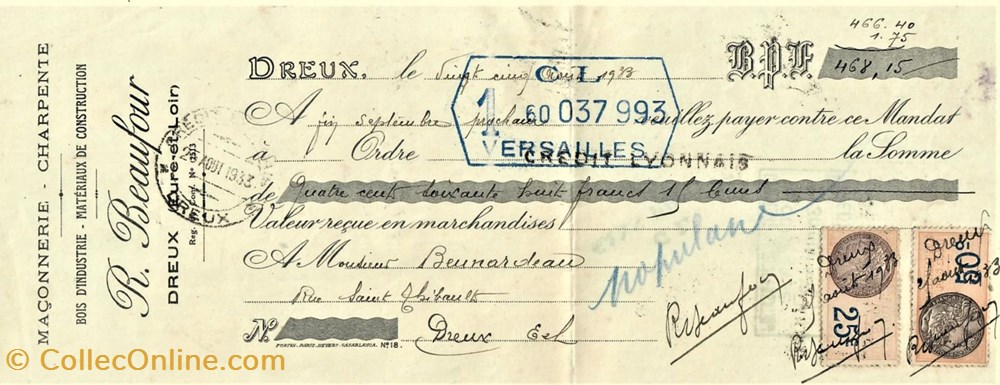 MAÇONNERIE - CHARPENTE
BOIS D'INDUSTRIE - MATÉRIAUX DE CONSTRUCTION
R. Beaufour
DREUX (Eure-et-Loir)
466.40
1.75
DREUX, le Vingt cinq Août 1933 B.P.F. 468,15
C L
1 60 037 993
VERSAILLES
A fin septembre prochain veuillez payer contre ce Mandat
à Ordre CREDIT LYONNAIS la Somme
de Quatre cent soixante huit francs 15 cmes
Valeur reçue en marchandises
populaire
A Monsieur Beunardeau
Rue Saint Thibault
No Dreux E&L
No 18.
AOUT 1933
DREUX
Dreux
août 1933
25
RBeaufour
Dreux
août 33
50c
RBeaufour
RBeaufour
© CollecOnline.com